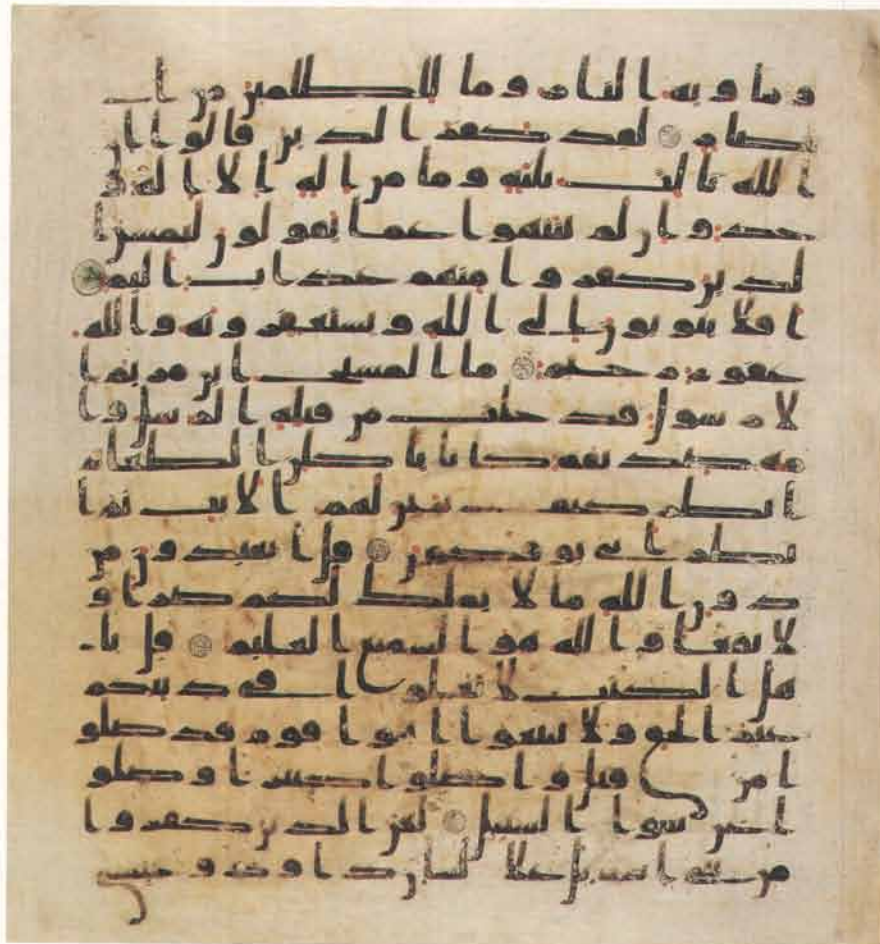 وماويه النار وما للظلمين من ا
نصار لقد كفر الذين قالوا ان
الله ثالث ثلثة وما من اله الا اله و
حد وان لم ينتهوا عما يقولون ليمسن ا
لذين كفروا منهم عذاب اليم
افلا يتوبون الى الله ويستغفرونه والله
غفور رحيم ما المسيح ابن مريم ا
لا رسول قد خلت من قبله الرسل وا
مه صديقة كانا ياكلن الطعام
انظر كيف نبين لهم الايت ثم ا
نظر انى يوفكون قل اتعبدون من
دون الله ما لا يملك لكم ضرا و
لا نفعا والله هو السميع العليم قل يا
هل الكتب لا تغلوا في دينكم
غير الحق ولا تتبعوا اهوا قوم قد ضلو
ا من قبل واضلوا كثيرا وضلو
ا عن سوا السبيل لعن الذين كفروا
من بني اسريل على لسان داود وعيسى